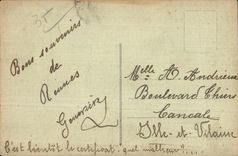 35
Bons souvenirs
de
Rennes
Geneviève
Melle A. Andrieux
Boulevard Thiers
Cancale
Ille-et-Vilaine
C'est bientôt le certificat quel malheur!...